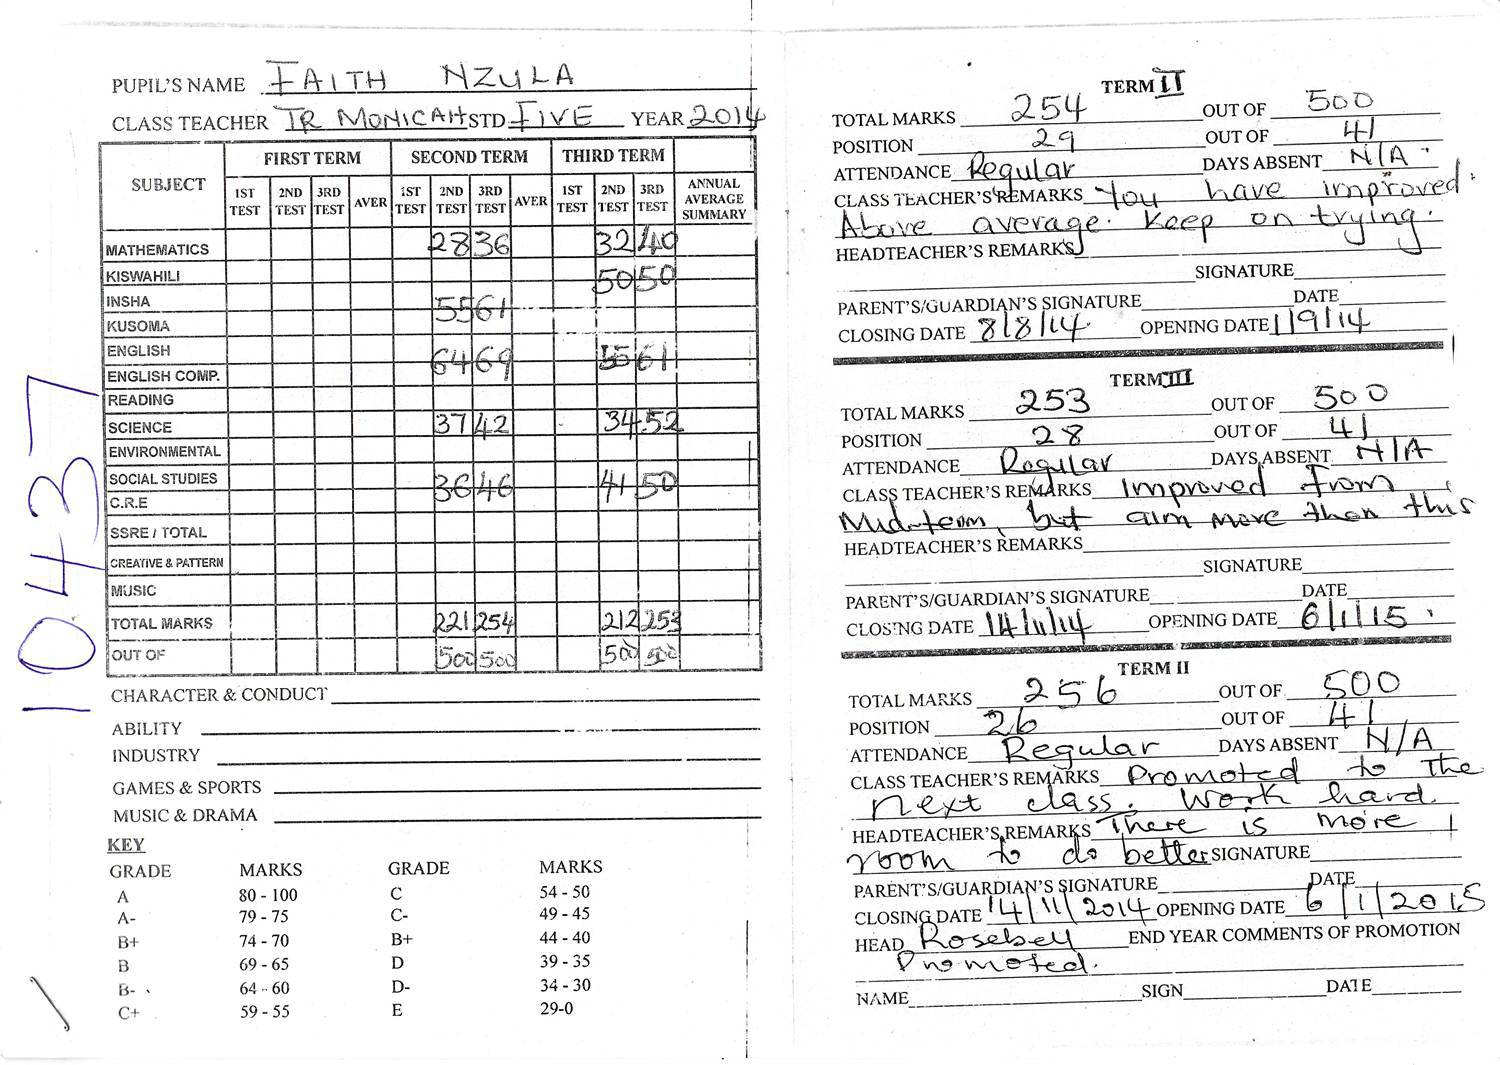 PUPIL'S NAME FAITH NZULA
CLASS TEACHER TR MONICAH STD FIVE YEAR 2014
SUBJECT FIRST TERM SECOND TERM THIRD TERM
1ST TEST 2ND TEST 3RD TEST AVER 1ST TEST 2ND TEST 3RD TEST AVER 1ST TEST 2ND TEST 3RD TEST ANNUAL AVERAGE SUMMARY
MATHEMATICS 28 36 32 40
KISWAHILI 50 50
INSHA 55 61
KUSOMA
ENGLISH 64 69 55 61
ENGLISH COMP.
READING
SCIENCE 37 42 34 52
ENVIRONMENTAL
SOCIAL STUDIES 36 46 41 50
C.R.E
SSRE / TOTAL
CREATIVE & PATTERN
MUSIC
TOTAL MARKS 221 254 212 253
OUT OF 500 500 500 500
CHARACTER & CONDUCT
ABILITY
INDUSTRY
GAMES & SPORTS
MUSIC & DRAMA
KEY
GRADE MARKS GRADE MARKS
A 80 - 100 C 54 - 50
A- 79 - 75 C- 49 - 45
B+ 74 - 70 B+ 44 - 40
B 69 - 65 D 39 - 35
B- 64 - 60 D- 34 - 30
C+ 59 - 55 E 29-0
10437
TERM II
TOTAL MARKS 254 OUT OF 500
POSITION 29 OUT OF 41
ATTENDANCE Regular DAYS ABSENT N/A
CLASS TEACHER'S REMARKS You have improved.
Above average. Keep on trying.
HEADTEACHER'S REMARKS
SIGNATURE
PARENT'S/GUARDIAN'S SIGNATURE DATE
CLOSING DATE 8/8/14. OPENING DATE 1/9/14
TERM III
TOTAL MARKS 253 OUT OF 500
POSITION 28 OUT OF 41
ATTENDANCE Regular DAYS ABSENT N/A
CLASS TEACHER'S REMARKS Improved from
Mid-term, but aim more than this
HEADTEACHER'S REMARKS
SIGNATURE
PARENT'S/GUARDIAN'S SIGNATURE DATE
CLOSING DATE 14/11/14 OPENING DATE 6/1/15.
TERM II
TOTAL MARKS 256 OUT OF 500
POSITION 26 OUT OF 41
ATTENDANCE Regular DAYS ABSENT N/A
CLASS TEACHER'S REMARKS Promoted to the
next class. Work hard.
HEADTEACHER'S REMARKS There is more
room to do better SIGNATURE
PARENT'S/GUARDIAN'S SIGNATURE DATE
CLOSING DATE 14/11/2014 OPENING DATE 6/1/2015
HEAD Rosebell END YEAR COMMENTS OF PROMOTION
Promoted.
NAME SIGN DATE